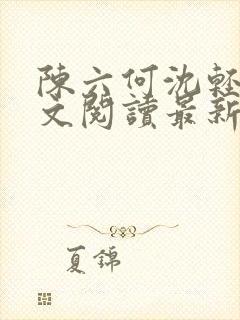 陳六何沈輕
文閱讀最新
夏錦